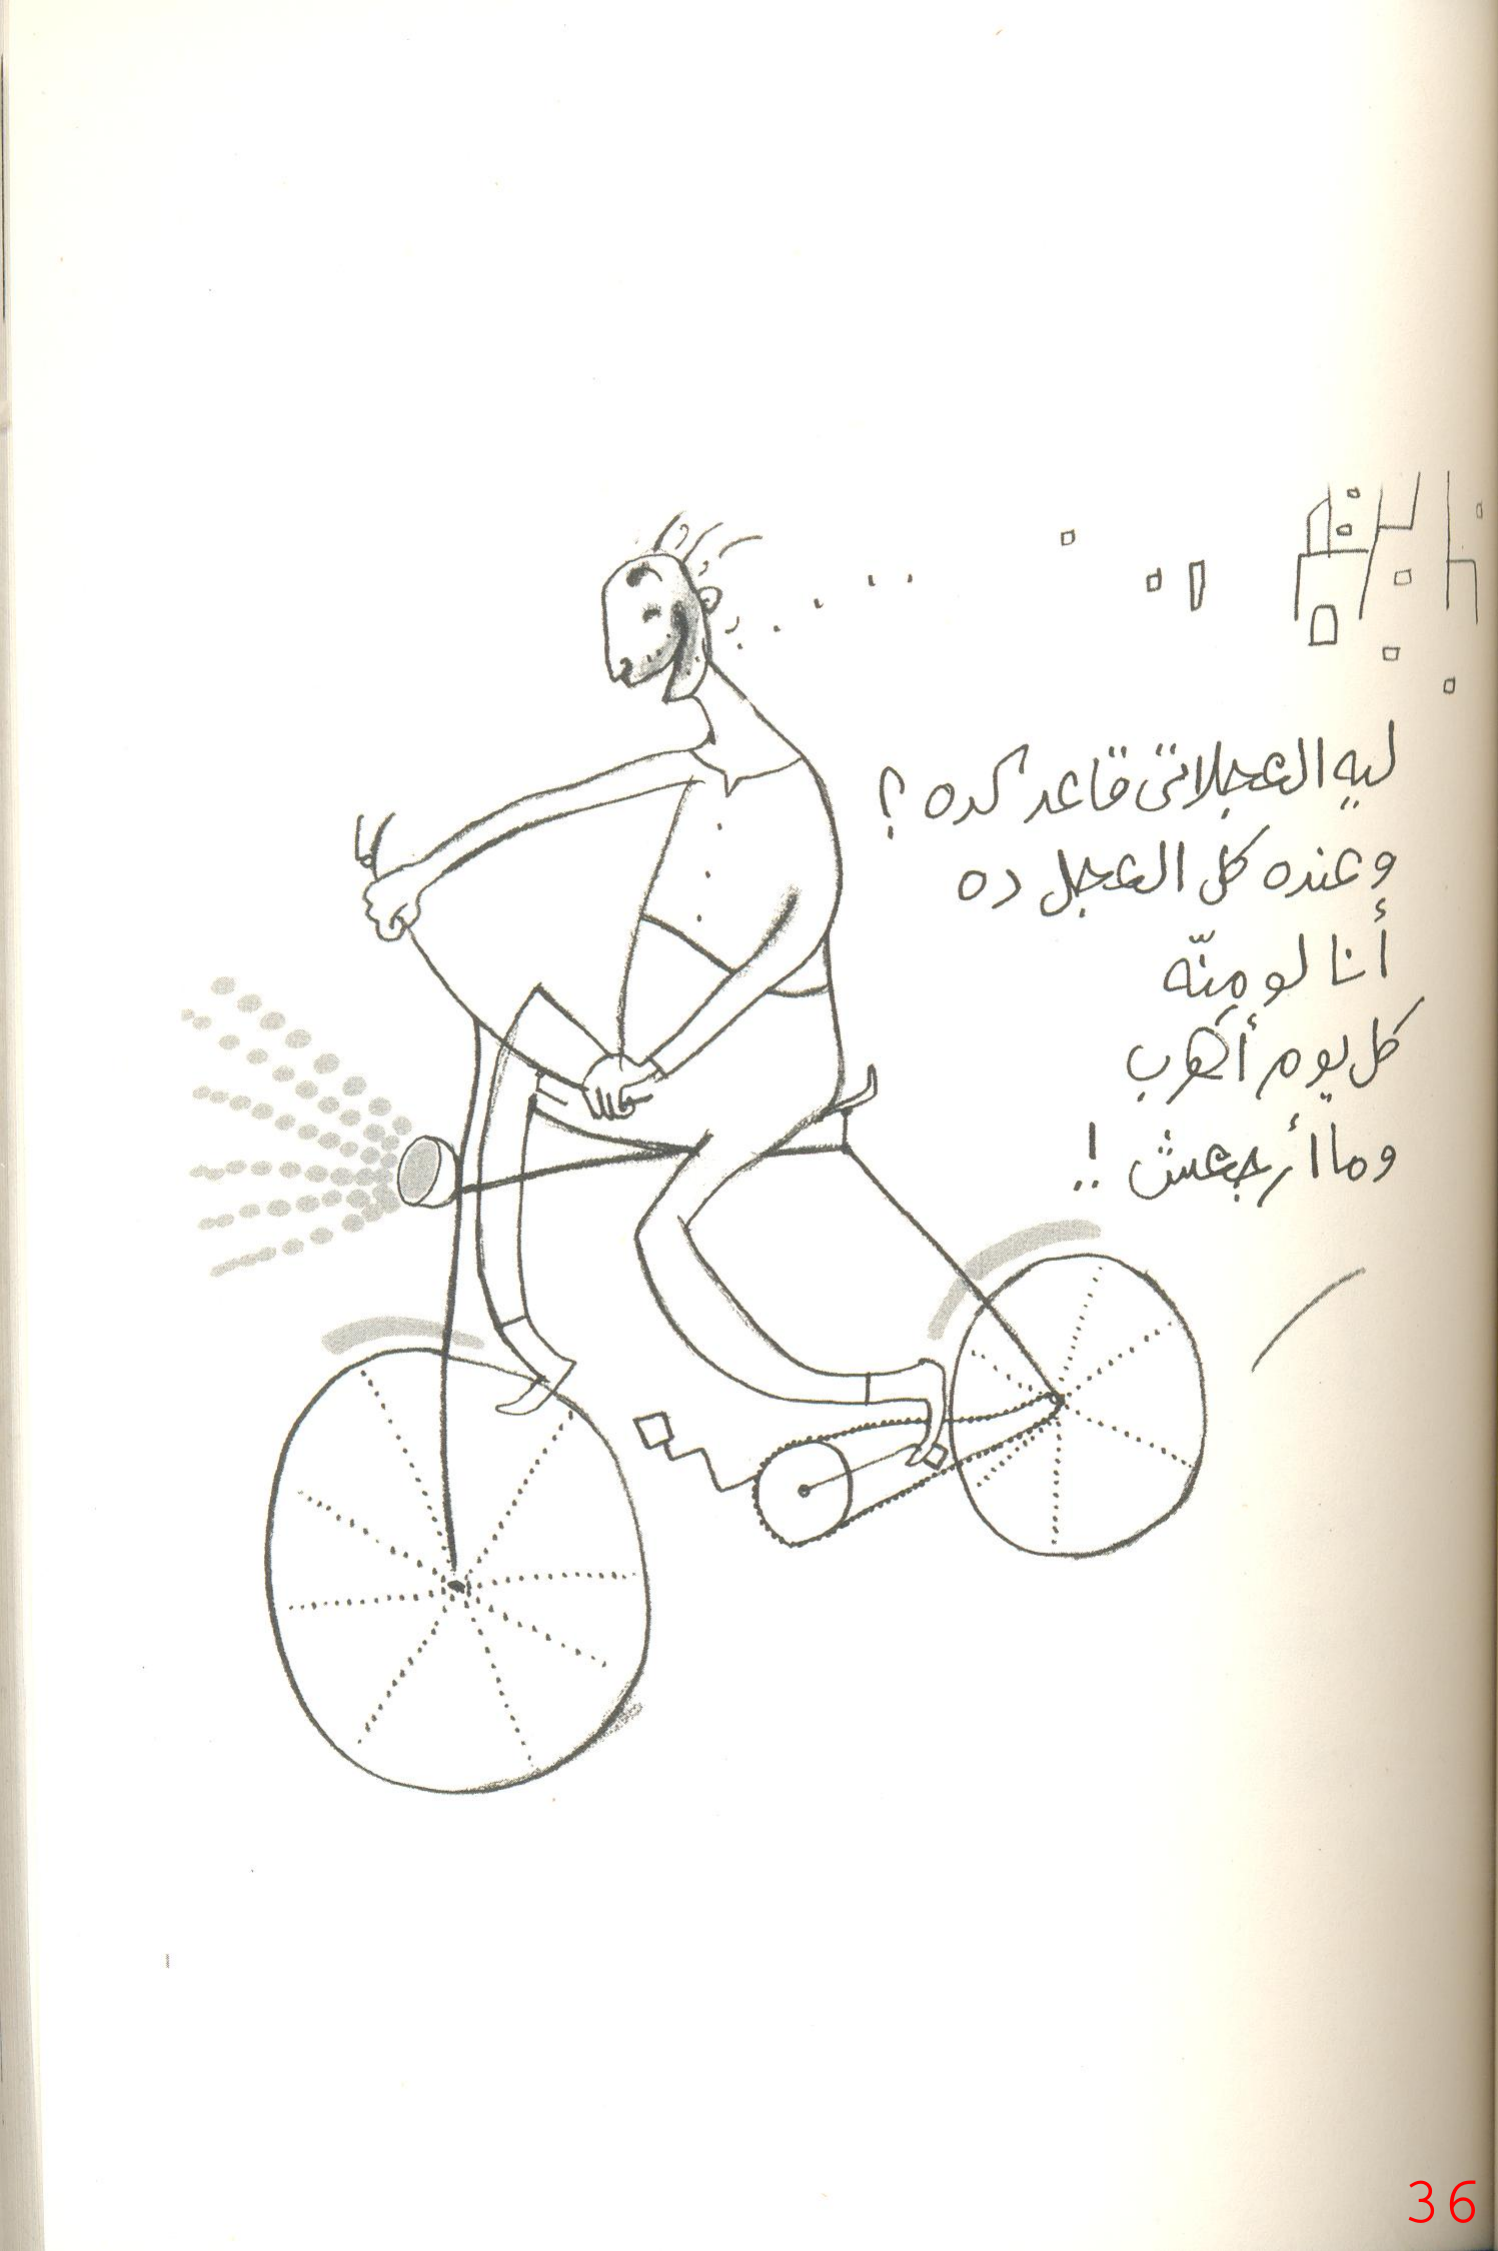 ليه العجلاتى قاعد كده ؟
وعنده كل العجل ده
أنا لو مِنّه
كل يوم أهرب
وما أرجعش !!
36